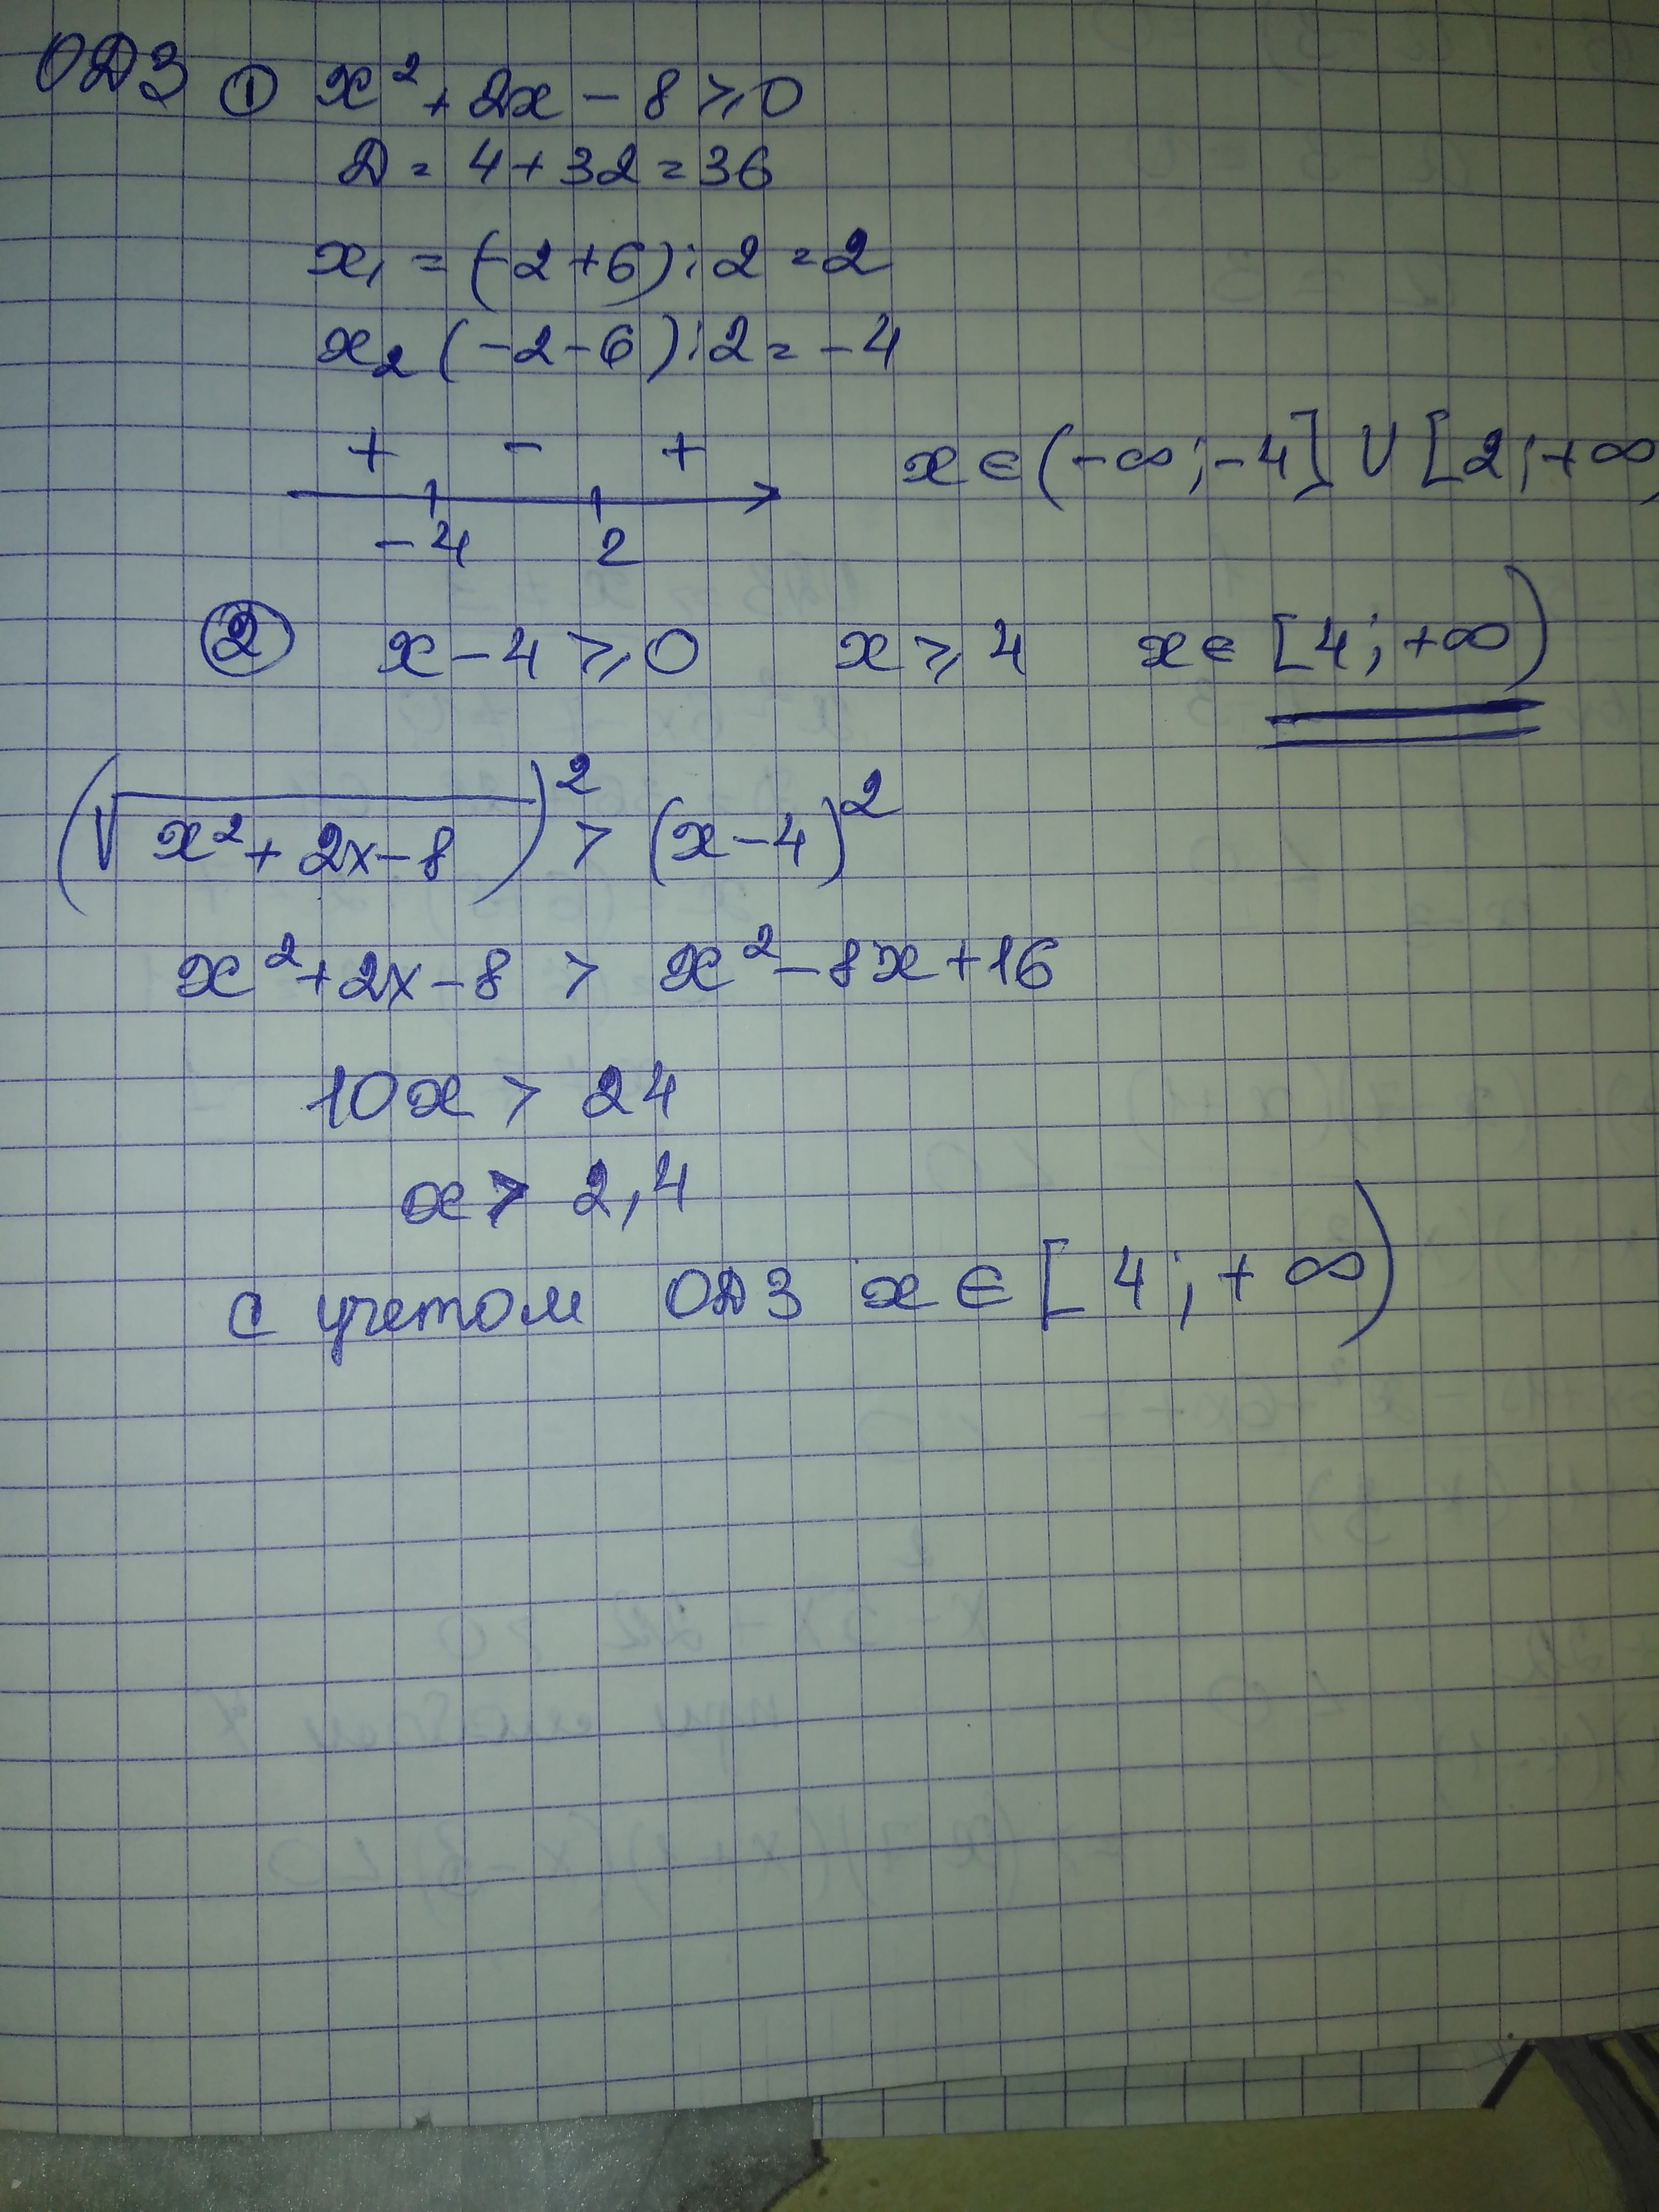 ОДЗ ① x² + 2x - 8 ⩾ 0
D = 4 + 32 = 36
x₁ = (-2+6):2 = 2
x₂ (-2-6):2 = -4
+ - +
x ∈ (-∞; -4] ∪ [2; +∞)
-4 2
② x - 4 ⩾ 0 x ⩾ 4 x ∈ [4; +∞)
(√x² + 2x - 8)² > (x - 4)²
x² + 2x - 8 > x² - 8x + 16
10x > 24
x > 2,4
с учетом ОДЗ x ∈ [4; +∞)